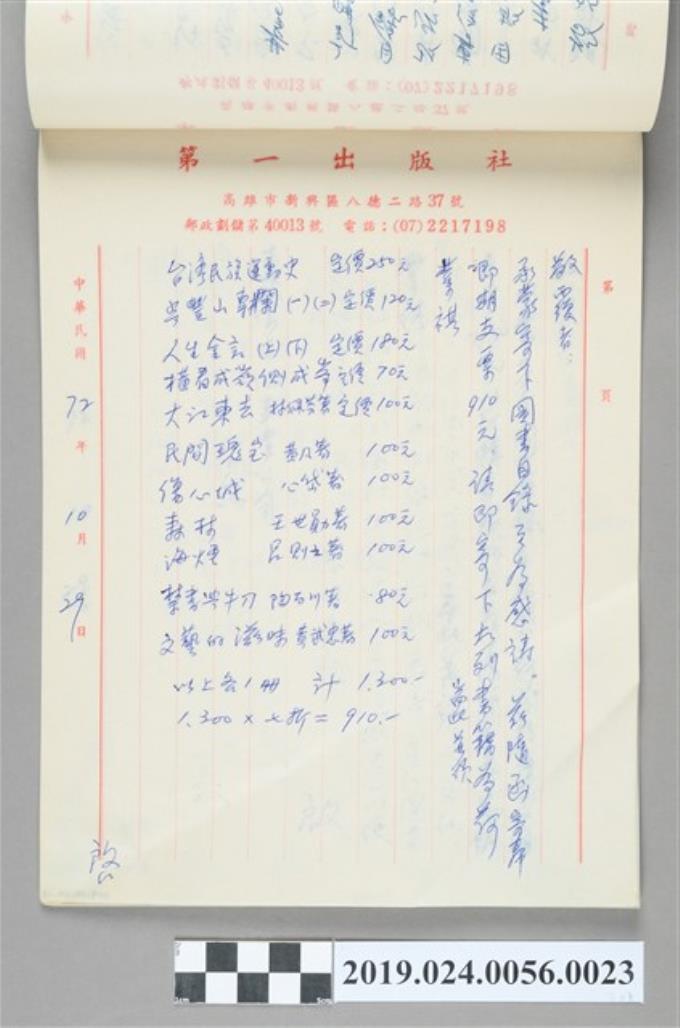 第一出版社
高雄市新興區八德二路37號
郵政劃儲第40013號 電話:(07)2217198
第 頁
敬覆者:
承蒙寄下圖書目錄至為感謝。茲隨函寄奉
即期支票910元請即寄下左列書籍為荷
耑此並頌
書祺
台湾民族運動史 定價250元
專欄(一)(二)定價120元
人生金言(上)(下) 定價180元
橫看成嶺側成峯定價70元
大江東去 定價100元
民間瑰宝 著 100元
傷心城 心岱著 100元
森林 王世勛著 100元
海煙 呂則之著 100元
禁書與牛刀 陶百川著 80元
文藝的滋味 黃武忠著 100元
以上各1冊 計 1.300-
1.300×七折=910.-
中華民國72年10月29日
啟
2019.024.0056.0023